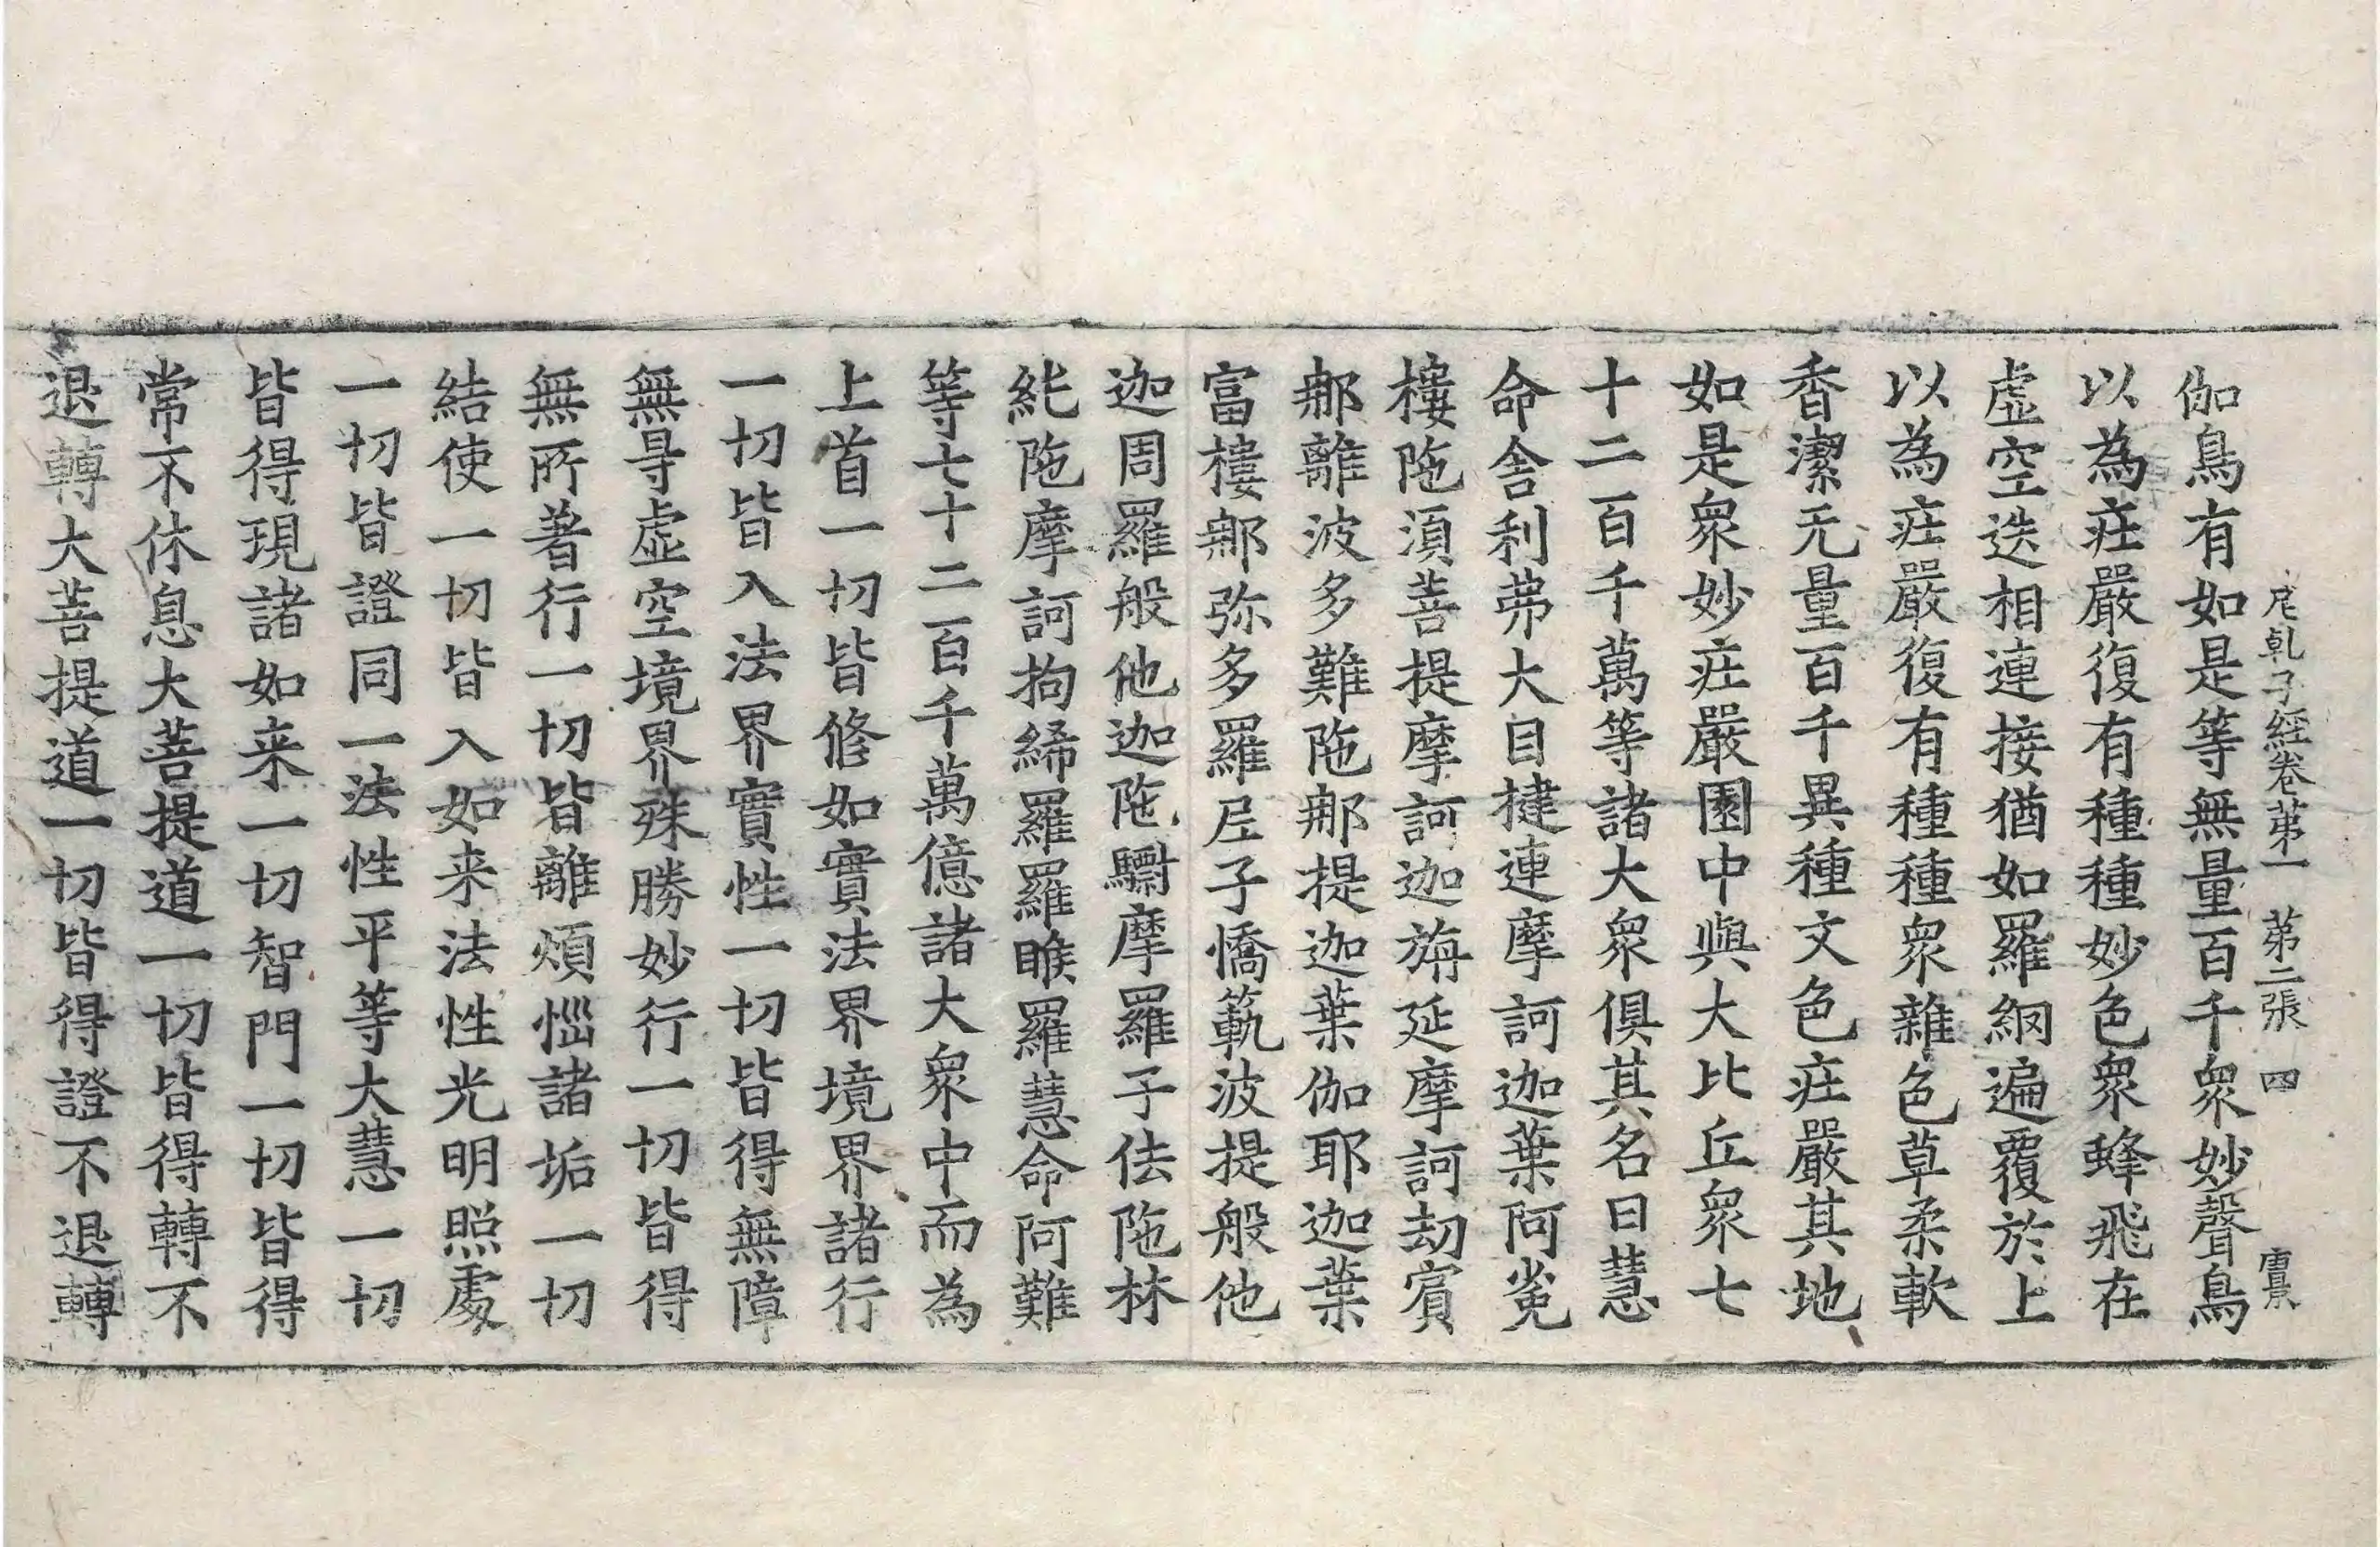 尼乹子經卷苐一　苐二張　四　唐景
伽鳥有如是等無量百千衆妙聲鳥
以為莊嚴復有種種妙色衆蜂飛在
虛空迭相連接猶如羅網遍覆於上
以為莊嚴復有種種衆雜色草柔軟
香潔无量百千異種文色莊嚴其地
如是衆妙莊嚴園中與大比丘衆七
十二百千萬等諸大衆俱其名曰慧
命舎利弗大目揵連摩訶迦葉阿㝹
樓陁湏菩提摩訶迦旃延摩訶劫賓
那離波多難陁那提迦葉伽耶迦葉
富樓那弥多羅尼子憍笵波提般他
迦周羅般他迦陁驃摩羅子佉陁林
紕陁摩訶拘絺羅羅睺羅慧命阿難
等七十二百千萬億諸大衆中而為
上首一切皆修如實法界境界諸行
一切皆入法界實性一切皆得無障
無㝵虛空境界殊勝妙行一切皆得
無所著行一切皆離煩惱諸垢一切
結使一切皆入如来法性光明照處
一切皆證同一法性平等大慧一切
皆得現諸如来一切智門一切皆得
常不休息大菩提道一切皆得轉不
退轉大菩提道一切皆得證不退轉